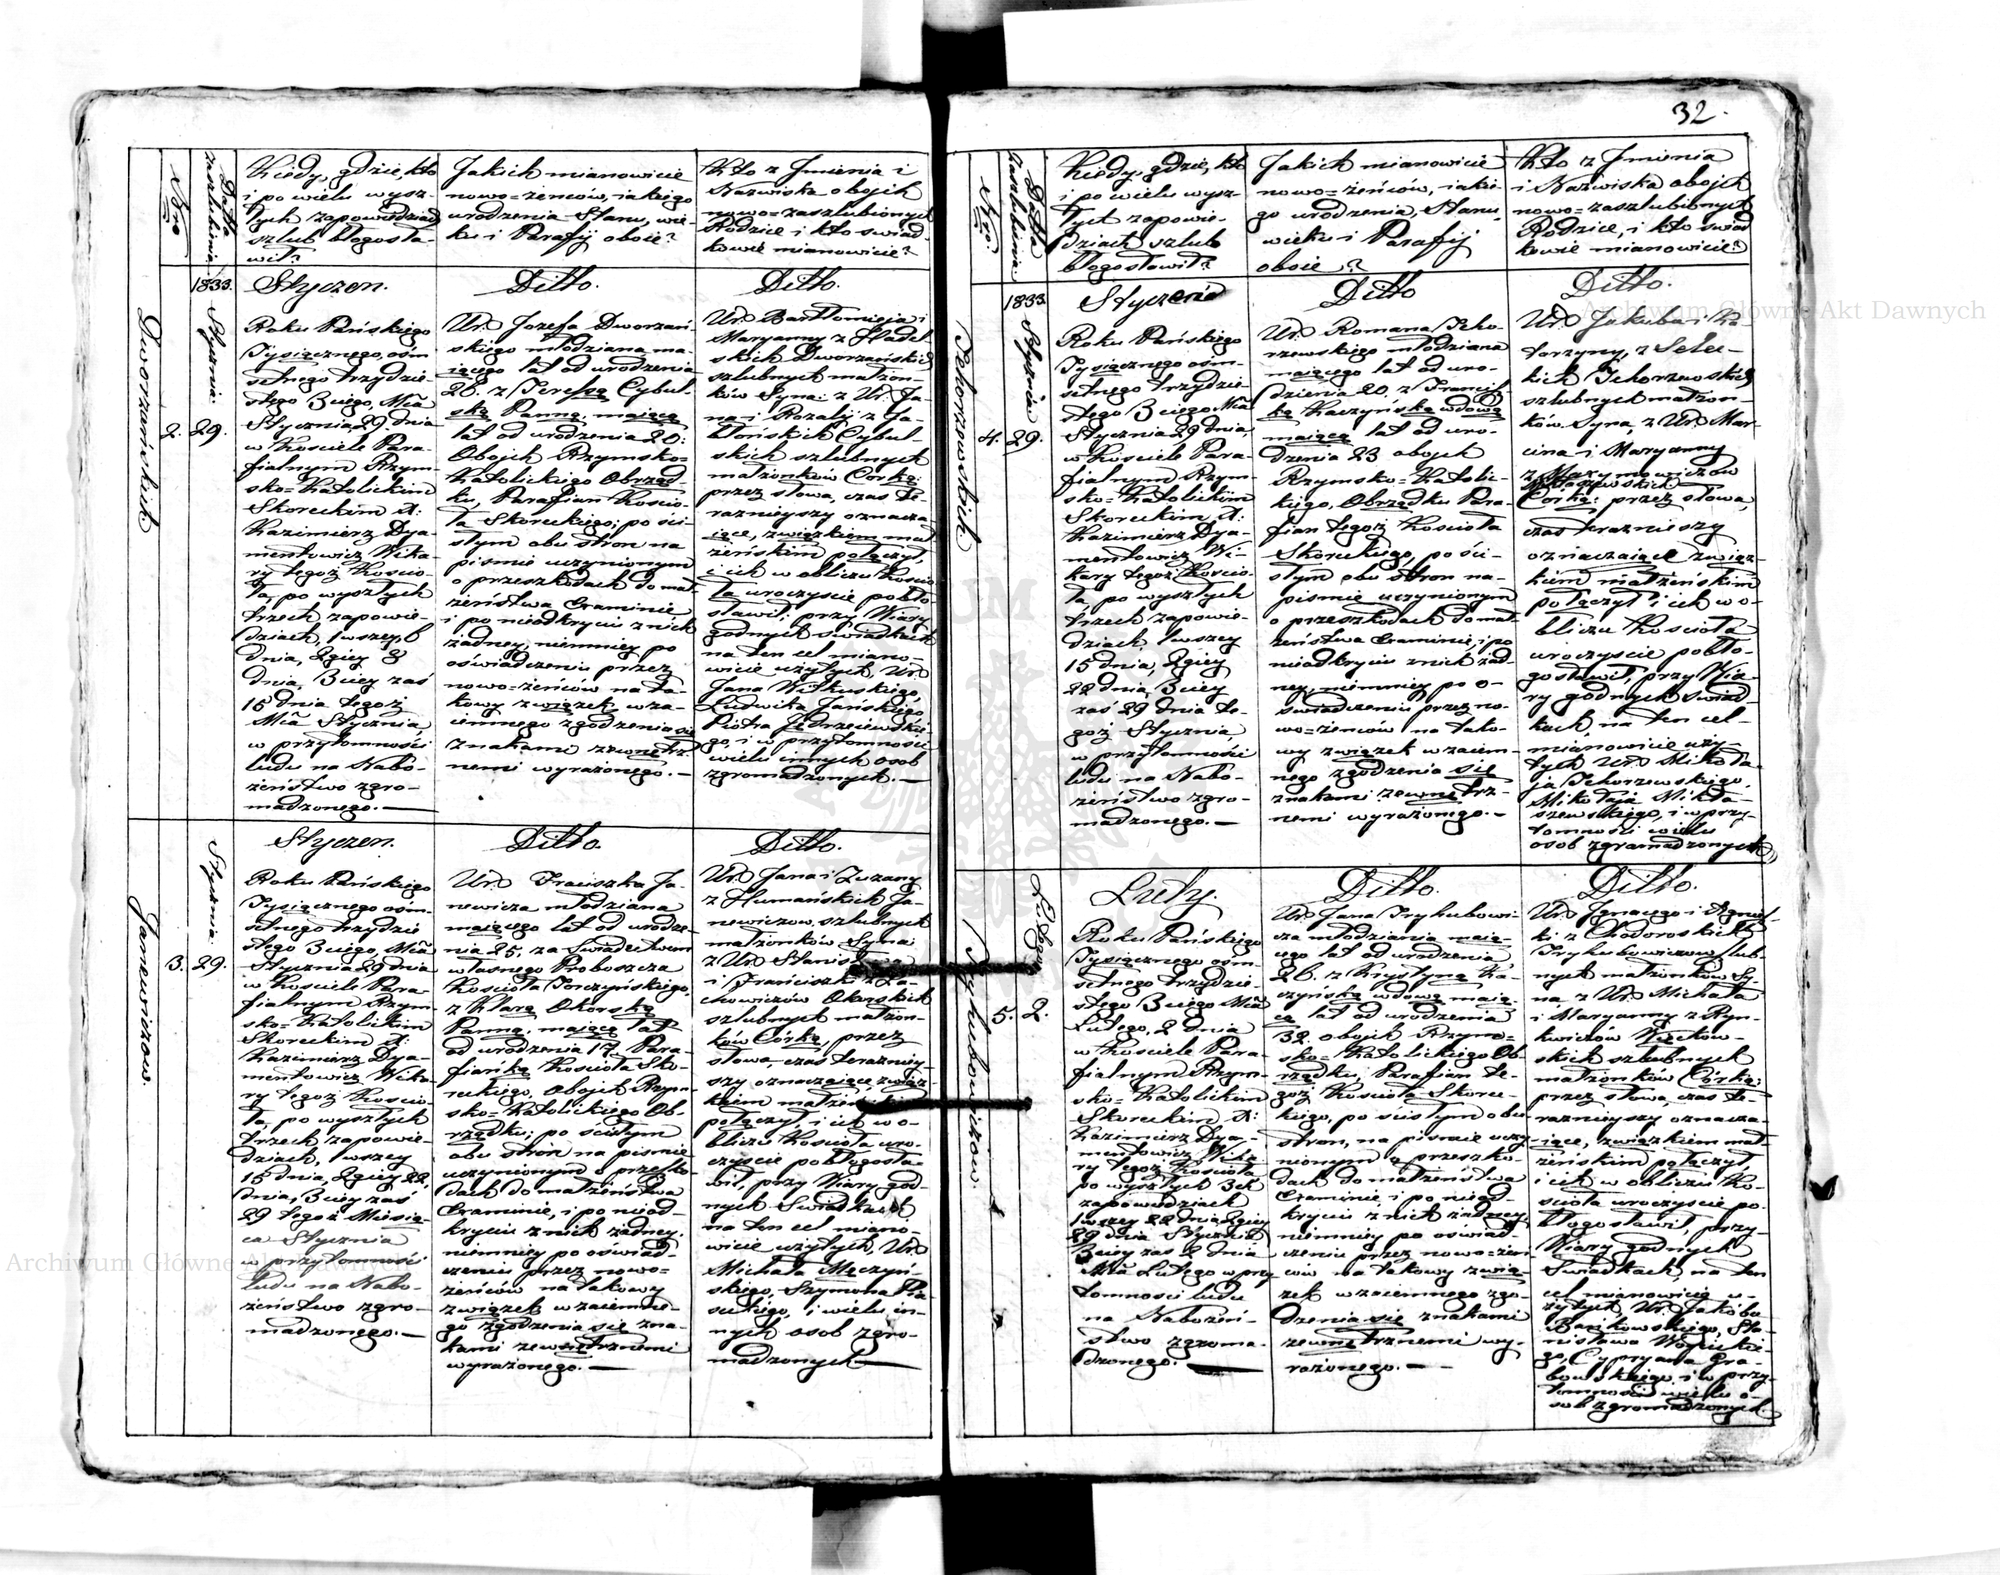 32.
Nro
Datta zaszlubienia
Kiedy, gdzie, kto
i po wielu wysz-
łych zapowiedziach
szlub błogosła-
wił?
Jakich mianowicie
nowo=żeńców, iakiego
urodzenia Stanu, wie-
ku i Parafij oboie?
Kto z Jmienia i
Nazwiska obojch
nowo=zaszlubionych
Rodzice i kto świad-
kowie mianowicie?
Dworzańskich
2.
1833.
Stycznia
29.
Styczen.
Roku Pańskiego
Tysiącznego, ośm
setnego trzydzie-
stego 3ciego, Mca
Stycznia 29 dnia
w Kosciele Para-
fialnym Rzym-
sko=Katolickim
Skoreckim X:
Kazimierz Dya-
mentowicz Wika-
ry tegoż Kościo-
ła, po wyszłych
trzech zapowie-
dziach, 1wszey, 6
dnia, 2giey 8
dnia, 3ciey zaś
15 dnia tegoż
Mca Stycznia,
w przytomności
ludu na Nabo-
żeństwo zgro-
madzonego.—
Ditto.
Ur. Jozefa Dworzań-
skiego młodziana ma-
iącego lat od urodzenia
28. z Teressą Cybul-
ską Panną, maiącą
lat od urodzenia 20:
Obojch Rzymsko=
Katolickiego Obrząd-
ku, Parafian Koscio-
ła Skoreckiego; po ści-
słym obu stron na
pismie uczynionym
o przeszkodach do mał-
żeństwa Examinie
i po nieodkryciu z nich
żadney, niemniey po
oświadczeniu przez
nowo=żeńców na ta-
kowy związek wza-
iemnego zgodzenia się
znakami zewnętrz-
nemi wyrażonego.—
Ditto.
Ur. Bartłomieja i
Maryanny z
Dworzańskich
szlubnych małżon-
ków Syna: z Ur: Ja-
na i Rozalij z Ja-
błońskich Cybul-
skich szlubnych
małżonków Córką:
przez słowa, czas te-
raznieyszy oznacza-
iące, związkiem mał-
żeńskim połączył,
i ich w obliczu Koscio-
ła uroczyscie pobło-
sławił, przy Wiary
godnych świadkach
na ten cel miano-
wicie użytych, Ur.
Jana Witkuskiego,
Ludwika Jańskiego,
Piotra Jędrzeiewskie-
go, i w przytomności
wielu innych osob
zgromadzonych.—
Janewiczow.
3.
Stycznia
29.
Styczen.
Roku Pańskiego
Tysiącznego ośm-
setnego trzydzie
stego 3ciego, Mca
Stycznia 29 dnia
w Kosciele Para-
fialnym Rzym-
sko=Katolickim
Skoreckim X:
Kazimierz Dya-
mentowicz Wika-
ry tegoż Koscio-
ła, po wyszłych
trzech zapowie-
dziach, 1wszey
15 dnia, 2giey 22,
dnia, 3ciey zaś
29 tegoż Miesią-
ca Stycznia
w przytomności
Ludu na Nabo-
żeństwo zgro-
madzonego.—
Ditto.
Ur. Franciszka Ja-
newicza młodziana
maiącego lat od urodze-
nia 25, za Swiadectwem
własnego Proboszcza
Koscioła Torczyńskiego,
z Klarą Okorską
Panną, maiącą lat
od urodzenia 17 Para-
fianką Kosciola Sko-
reckiego, Obojch Rzym-
sko=Katolickiego Ob-
rządku; po ścisłym
obu stron na pismie
uczynionym o przeszko-
dach do małżeństwa
Examinie, i po nieod-
kryciu z nich żadney,
niemniey po oświad-
czeniu przez nowo=
żeńców na takowy
związek wzaiemne-
go zgodzenia się zna-
kami zewnętrznemi
wyrażonego.—
Ditto.
Ur. Jana i Zuzany
z Humańskich Ja-
newiczow szlubnych
małżonków Syna:
z Ur.
i Franciszki z
Okorskich
szlubnych małżon-
ków Córką, przez
słowa, czas teraźniey-
szy oznaczaiące związ-
kiem małżeńskim
połączył, i ich w o-
bliczu Kosciola uro-
czyscie pobłogosła-
wił, przy Wiary god-
nych Swiadkach
na ten cel miano-
wicie użytych, Ur.
Michała Męczyń-
skiego, Szymona
i wielu in-
nych osob zgro-
madzonych—
Nro
Datta zaszlubienia
Kiedy, gdzie, kto
i po wielu wysz-
łych zapowie-
dziach szlub
błogosławił?
Jakich mianowicie
nowo=żeńców, iakie-
go urodzenia, Stanu,
wieku i Parafij
oboie?
Kto z Jmienia
i Nazwiska obojch
nowo=zaszlubionych
Rodzice, i kto świad-
kowie mianowicie?
Tchorzewskich
4.
1833
Stycznia
29.
Stycznia
Roku Pańskiego
Tysiącznego ośm-
setnego trzydzie-
stego 3ciego Mca
Stycznia 29 dnia,
w Kosciele Para-
fialnym Rzym-
sko=Katolickim
Skoreckim X:
Kazimierz Dya-
mentowicz Wi-
kary tegoż Koscio-
ła po wyszłych
trzech zapowie-
dziach, 1wszey
15 dnia, 2giey
22 dnia, 3ciey
zaś 29 dnia te-
goż Stycznia,
w przytomności
ludu na Nabo-
żeństwo zgro-
madzonego.—
Ditto
Ur. Romana Tcho-
rzewskiego młodziana
maiącego lat od uro-
dzenia 20. z Francisz
ką Kaczyńską wdową
maiącą lat od uro-
dzenia 23 obojch
Rzymsko=Katolic-
kiego, Obrządku Para-
fian tegoż Kosciola
Skoreckiego, po ści-
słym obu stron na-
pismie uczynionym
o przeszkodach do mał-
żeństwa Examinie, i po
nieodkryciu z nich żad-
ney, niemniey po o-
swiadczeniu przez no-
wo=żeńców na tako-
wy związek wzaiem-
nego zgodzenia się
znakami zewnętrz-
nemi wyrażonego.—
Ditto.
Ur. Jakuba i Ka-
tarzyny, z
Tchorzewskich
szlubnych małżon-
ków Syna, z Ur. Mar-
cina i Maryanny
z Maxymowiczow
Córką: przez słowa,
czas teraznieszy
oznaczaiące związ-
kiem małżeńskim
połączył i ich w o-
bliczu Kosciola
uroczyscie pobło-
gosławił, przy Wia-
ry godnych Swiad-
kach, na ten cel-
mianowicie uży-
tych Ur. Mikoła-
ja Tchorzewskiego,
Mikołaja Mikła-
szewskiego, i w przy-
tomności wielu
osob zgromadzonych
Tryhubowiczow.
5.
Lutego
2.
Luty.
Roku Pańskiego
Tysiącznego ośm-
setnego trzydzie-
stego 3ciego Mca
Lutego, 2 dnia
w Kosciele Para-
fialnym Rzym-
sko=Katolickim
Skoreckim X:
Kazimierz Dya-
mentowicz Wika-
ry tegoż Kosciola
po wyszłych 3ch
zapowiedziach
1wszey 22 dnia 2giey
29 dnia Stycznia
3ciey zas 2 dnia
Mca Lutego w przy
tomności ludu
na Nabożeń-
stwo zgroma-
dzonego.—
Ditto.
Ur. Jana Tryhubowi-
cza młodziania maią-
cego lat od urodzenia
26. z Krystyną Ka-
czyńską wdową maią-
cą lat od urodzenia
32. obojch Rzym-
sko=Katolickiego Ob-
rządku Parafian te-
goż Kosciola Skorec-
kiego, po ścisłym obu
stron, na pismie uczy-
nionym o przeszko-
dach do małżeństwa
Examinie i po nieod-
kryciu z nich żadney,
niemniey po oświad-
czeniu przez nowo=żeń-
ców na takowy zwią-
zek wzaiemnego zgo-
dzenia się znakami
zewnętrznemi wy-
rażonego.—
Ditto.
Ur. Jgnacego i Agniesz-
ki z Chodoroskich
Tryhubowiczow szlub-
nych małżonków Sy-
na, z Ur. Michała
i Maryanny z Ryn-
kwiczów
skich szlubnych
małżonków Córką:
przez słowa, czas te-
raznieyszy oznacza-
iące, związkiem mał-
żeńskim połączył,
i ich w obliczu Ko-
sciola uroczyscie po-
błogosławił, przy
Wiary godnych
Swiadkach, na ten
cel mianowicie u-
żytych, Ur. Jakóba
Sta-
nisława
go, Cypryana Gra-
bowskiego, i w przy-
tomności wielu o-
sob zgromadzonych.
Archiwum Główne Akt Dawnych
Archiwum Główne Akt Dawnych